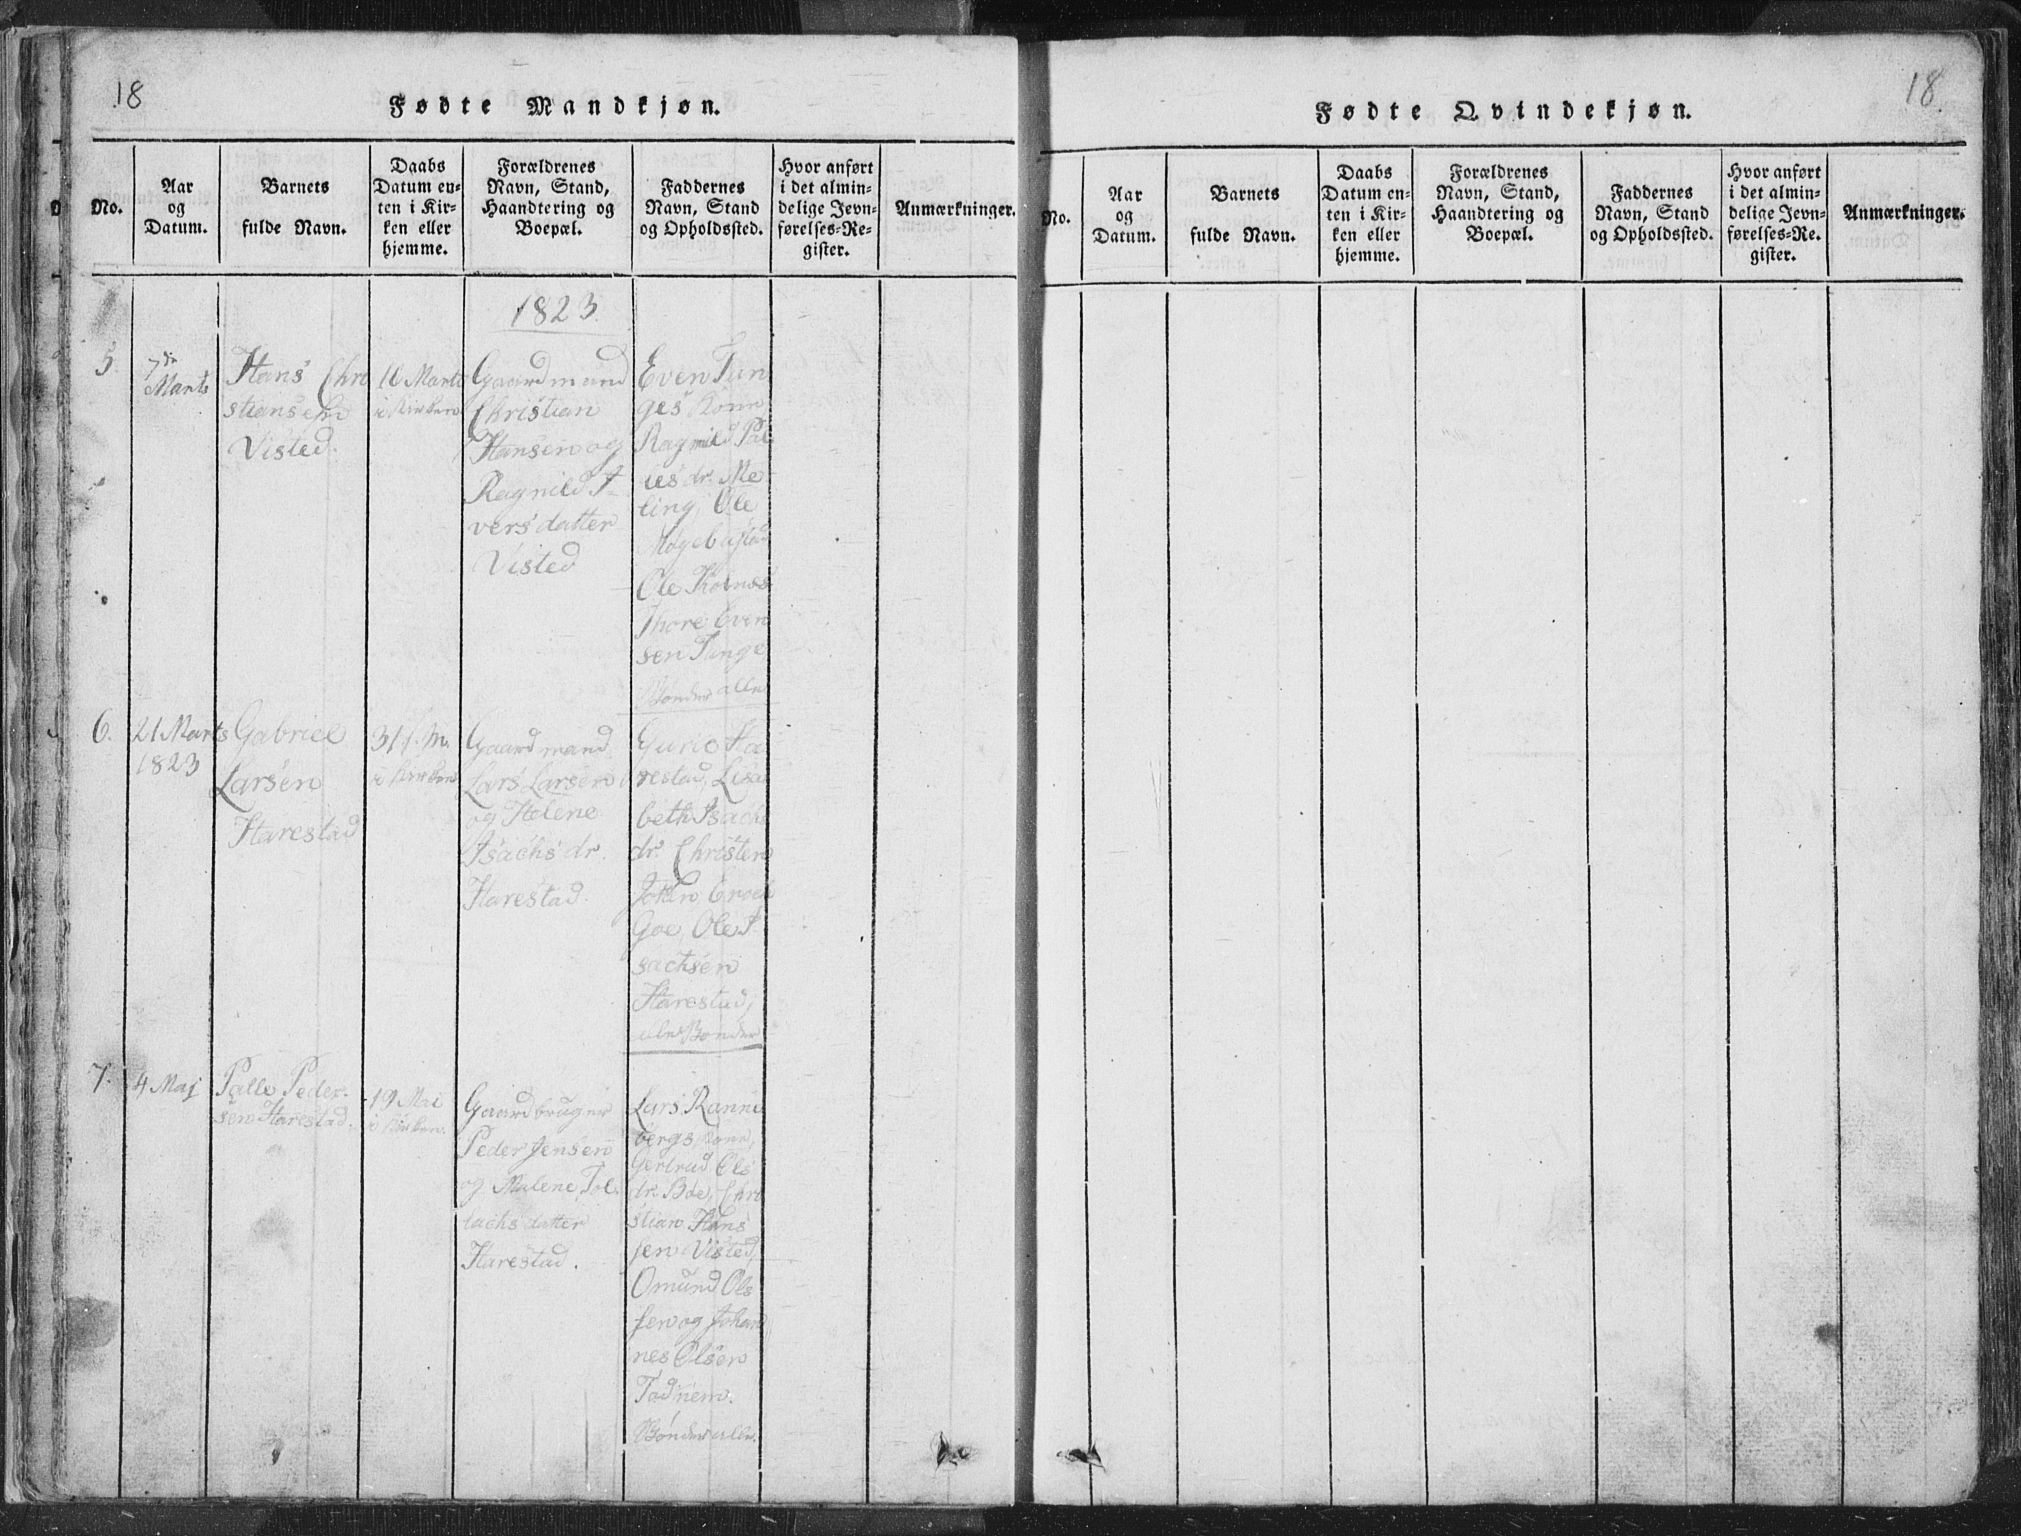 18
Fødte Mandkjøn.
No.
Aar
og
Datum.
Barnets
fulde Navn.
Daabs
Datum en-
ten i Kir-
ken eller
hjemme.
Forældrenes
Navn, Stand,
Haandtering og
Boepæl.
Faddernes
Navn, Stand
og Opholdssted.
Hvor anført
i det almin-
delige Jevn-
førelses-Re-
gister.
Anmærkninger.
1823
5
7de
Marts
Hans Chri
stiansen
Visted.
16 Marts
i Kirken
Gaardmand
Christian
Hansen og
Ragnild I-
versdatter
Visted
Even Tun
ges Kone
Ragnild Pal
lesdr. Me
ling, Ole
Ole Kolnes
Thore Even
sen Tunge
Bønder alle
6.
21 Marts
1823
Gabriel
Larsen
Harestad
31 f. M.
i Kirken
Gaardmand
Lars Larsen
og Helene
Isachs dr.
Harestad.
Gurie Ha
restad, Lisa
beth Isachs
dr. Christen
Goe, Ole I
sachsen
Harestad,
alle Bønder
7.
4 Maj
Palle Peder-
sen Harestad.
19 Mai
i Kirken.
Gaardbruger
Peder Jensen
og Malene Tol
lachsdatter
Harestad.
Lars Ranne
bergs Kone,
Gertrud Ols
dr. Bøe, Chri
stian Hans
sen Visted,
Omund Ols
sen og Johan
nes Olsen
Todnem.
Bønder alle.
18.
Fødte Qvindekjøn.
No.
Aar
og
Datum.
Barnets
fulde Navn.
Daabs
Datum en-
ten i Kir-
ken eller
hjemme.
Forældrenes
Navn, Stand,
Haandtering og
Boepæl.
Faddernes
Navn, Stand
og Opholdssted.
Hvor anført
i det almin-
delige Jevn-
førelses-Re-
gister.
Anmærkninger.